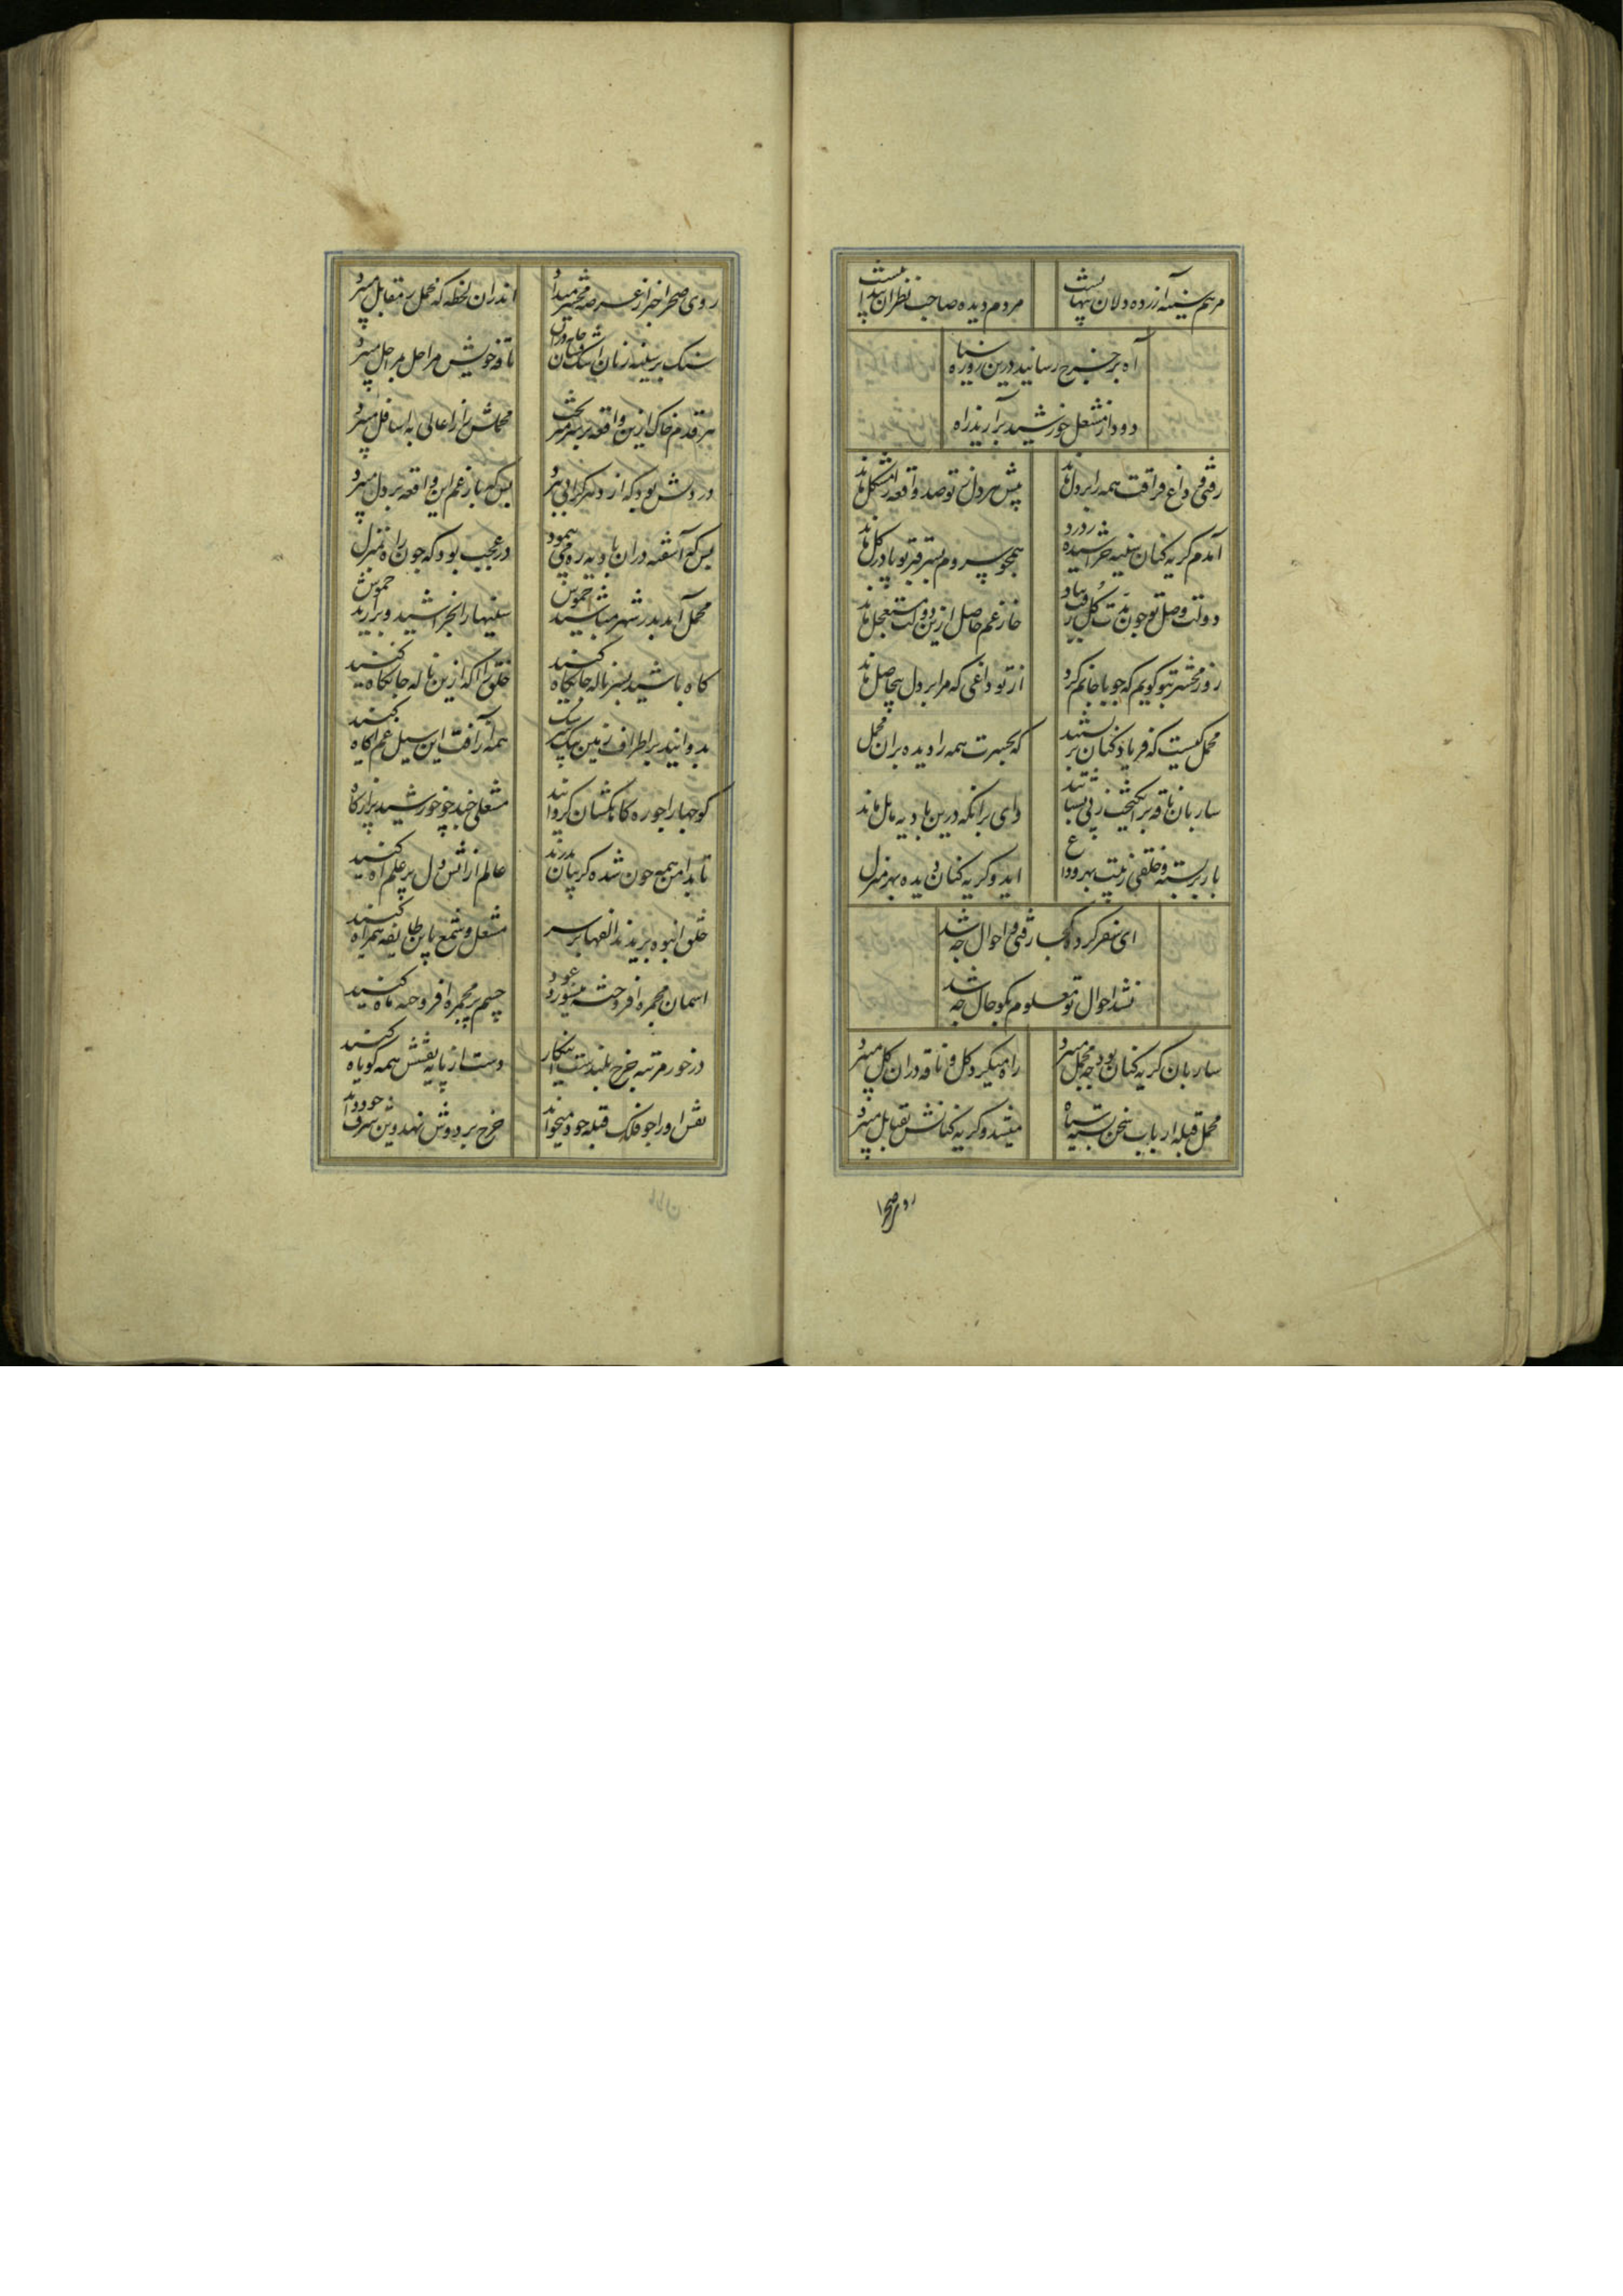 مرهم سینه آزرده دلان پنهانست
مردم دیده صاحب نظران پیدا نیست
آه بر چرخ رسانید درین روز سیاه
دود از مشعل خورشید برآرید ز آه
رفتی و داغ فراقت همه را بر دل ماند
پیش هر دل ز تو صد واقعه مشکل ماند
آمدم گریه کنان سینه خراشیده ز درد
همچو سروم بسر قبر تو پا در گل ماند
دولت وصل تو چون مدت گل رفت بباد
خار غم حاصل ازین دولت مستعجل ماند
روز محشر بتو گویم که چو با جانم کرد
از تو داغی که مرا بر دل بیحاصل ماند
محمل کیست که فریاد کنان بربستند
که بحسرت همه را دیده بران محمل
ساربان ناقه برانگیخت ز پی بشتابید
وای برانکه درین بادیه مایل ماند
بار بربسته و خلقی ز پیت بهر وداع
اید و گریه کنان دیده بهر منزل
ای سفر کرده کجا رفتی و احوال چه شد
نشد احوال تو معلوم بگو حال چه شد
ساربان گریه کنان بود چو محمل میبرد
راه میکرد گل و ناقه دران گل میبرد
محمل قبله ارباب سخن بسته سیاه
میشد و گریه کنانش بقبایل میبرد
روی صحرا
روی صحرا خبر از عرصه محشر میداد
اندران لحظه که محمل بمقابل میبرد
سنگ بر سینه زنان اشک فشان جامه دران
ناقه خویش مراحل بمراحل میبرد
هر قدم خاک ازین واقعه بر سر میریخت
محملش را ز اعالی به اسافل میبرد
در روش بود که از راهگذر
بس که بار غم این واقعه بر دل میبرد
بس که آشفته دران بادیه ره می پیمود
در عجب بود که چون راه بمنزل
محمل آمد بدر شهر مباشید خموش
سینها را بخراشید و برآرید خروش
کاه باشید بسر ناله جانکاه کنید
خلق را آگه ازین ناله جانکاه کنید
بدوانید بر اطراف زمین پیک سرشک
همه را ز آفت این سیل غم آگاه کنید
کوچها را چو ره کاهکشان گردانید
مشعلی چند چو خورشید پر از کاه
تا بدامن همه چون شده گریبان بدرید
عالم از آتش دل پر علم آه کنید
خلق انبوه بریدند الفها بر سر
مشعل و شمع باین طایفه همراه کنید
اسمان مجمره افروخته میسوزد عود
چشم بر مجمره افروخته ماه کنید
درخور مرتبه چرخ بلندست اینکار
دست از پایه نعشش همه کوتاه کنید
نعش او را چو فلک قبله خود میخواند
چرخ بر دوش نهد وین شرف خود داند